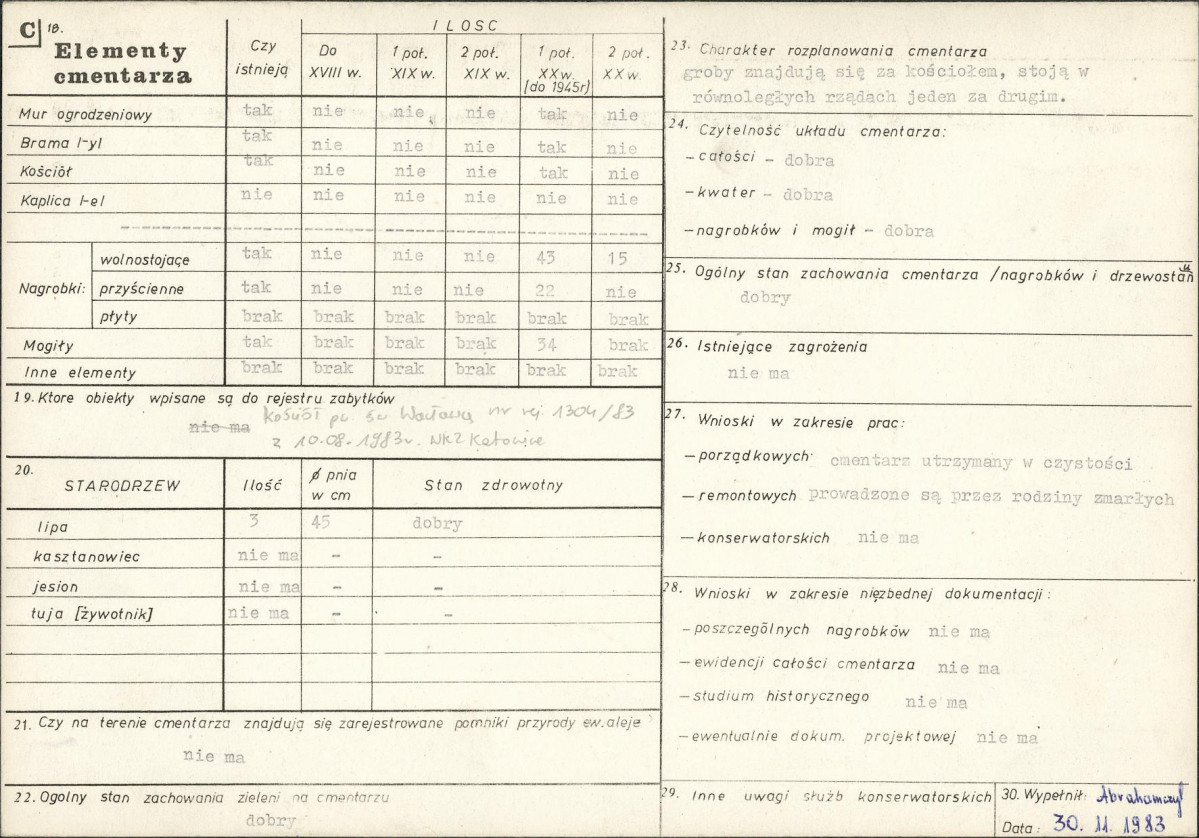 C 18.
Elementy cmentarza
Czy istnieją
ILOSC
Do XVIII w.
1 poł. XIX w.
2 poł. XIX w.
1 poł. XX w. (do 1945r)
2 poł. XX w.
Mur ogrodzeniowy tak nie nie nie tak nie
Brama /-y/ tak nie nie nie tak nie
Kościół tak nie nie nie tak nie
Kaplica /-e/ nie nie nie nie nie nie
Nagrobki: wolnostojące tak nie nie nie 43 15
przyścienne tak nie nie nie 22 nie
płyty brak brak brak brak brak brak
Mogiły tak brak brak brak 34 brak
Inne elementy brak brak brak brak brak brak
19. Ktore obiekty wpisane są do rejestru zabytków
nie ma Kościół pw. św Wacława nr rej. 1304/83
z 10.08.1983r. WKZ Katowice
20.
STARODRZEW Ilość ϕ pnia w cm Stan zdrowotny
lipa 3 45 dobry
kasztanowiec nie ma - -
jesion nie ma - -
tuja [żywotnik] nie ma - -
21. Czy na terenie cmentarza znajdują się zarejestrowane pomniki przyrody ew. aleje
nie ma
22. Ogolny stan zachowania zieleni na cmentarzu
dobry
23. Charakter rozplanowania cmentarza
groby znajdują się za kościołem, stoją w
równoległych rządach jeden za drugim.
24. Czytelność układu cmentarza:
- całości - dobra
- kwater - dobra
- nagrobków i mogił - dobra
25. Ogólny stan zachowania cmentarza /nagrobków i drzewostanu
dobry
26. Istniejące zagrożenia
nie ma
27. Wnioski w zakresie prac:
- porządkowych cmentarz utrzymany w czystości
- remontowych prowadzone są przez rodziny zmarłych
- konserwatorskich nie ma
28. Wnioski w zakresie nięzbednej dokumentacji:
- poszczególnych nagrobków nie ma
- ewidencji całości cmentarza nie ma
- studium historycznego nie ma
- ewentualnie dokum. projektowej nie ma
29. Inne uwagi służb konserwatorskich
30. Wypełnił: Abrahamczyk
Data: 30. 11. 1983